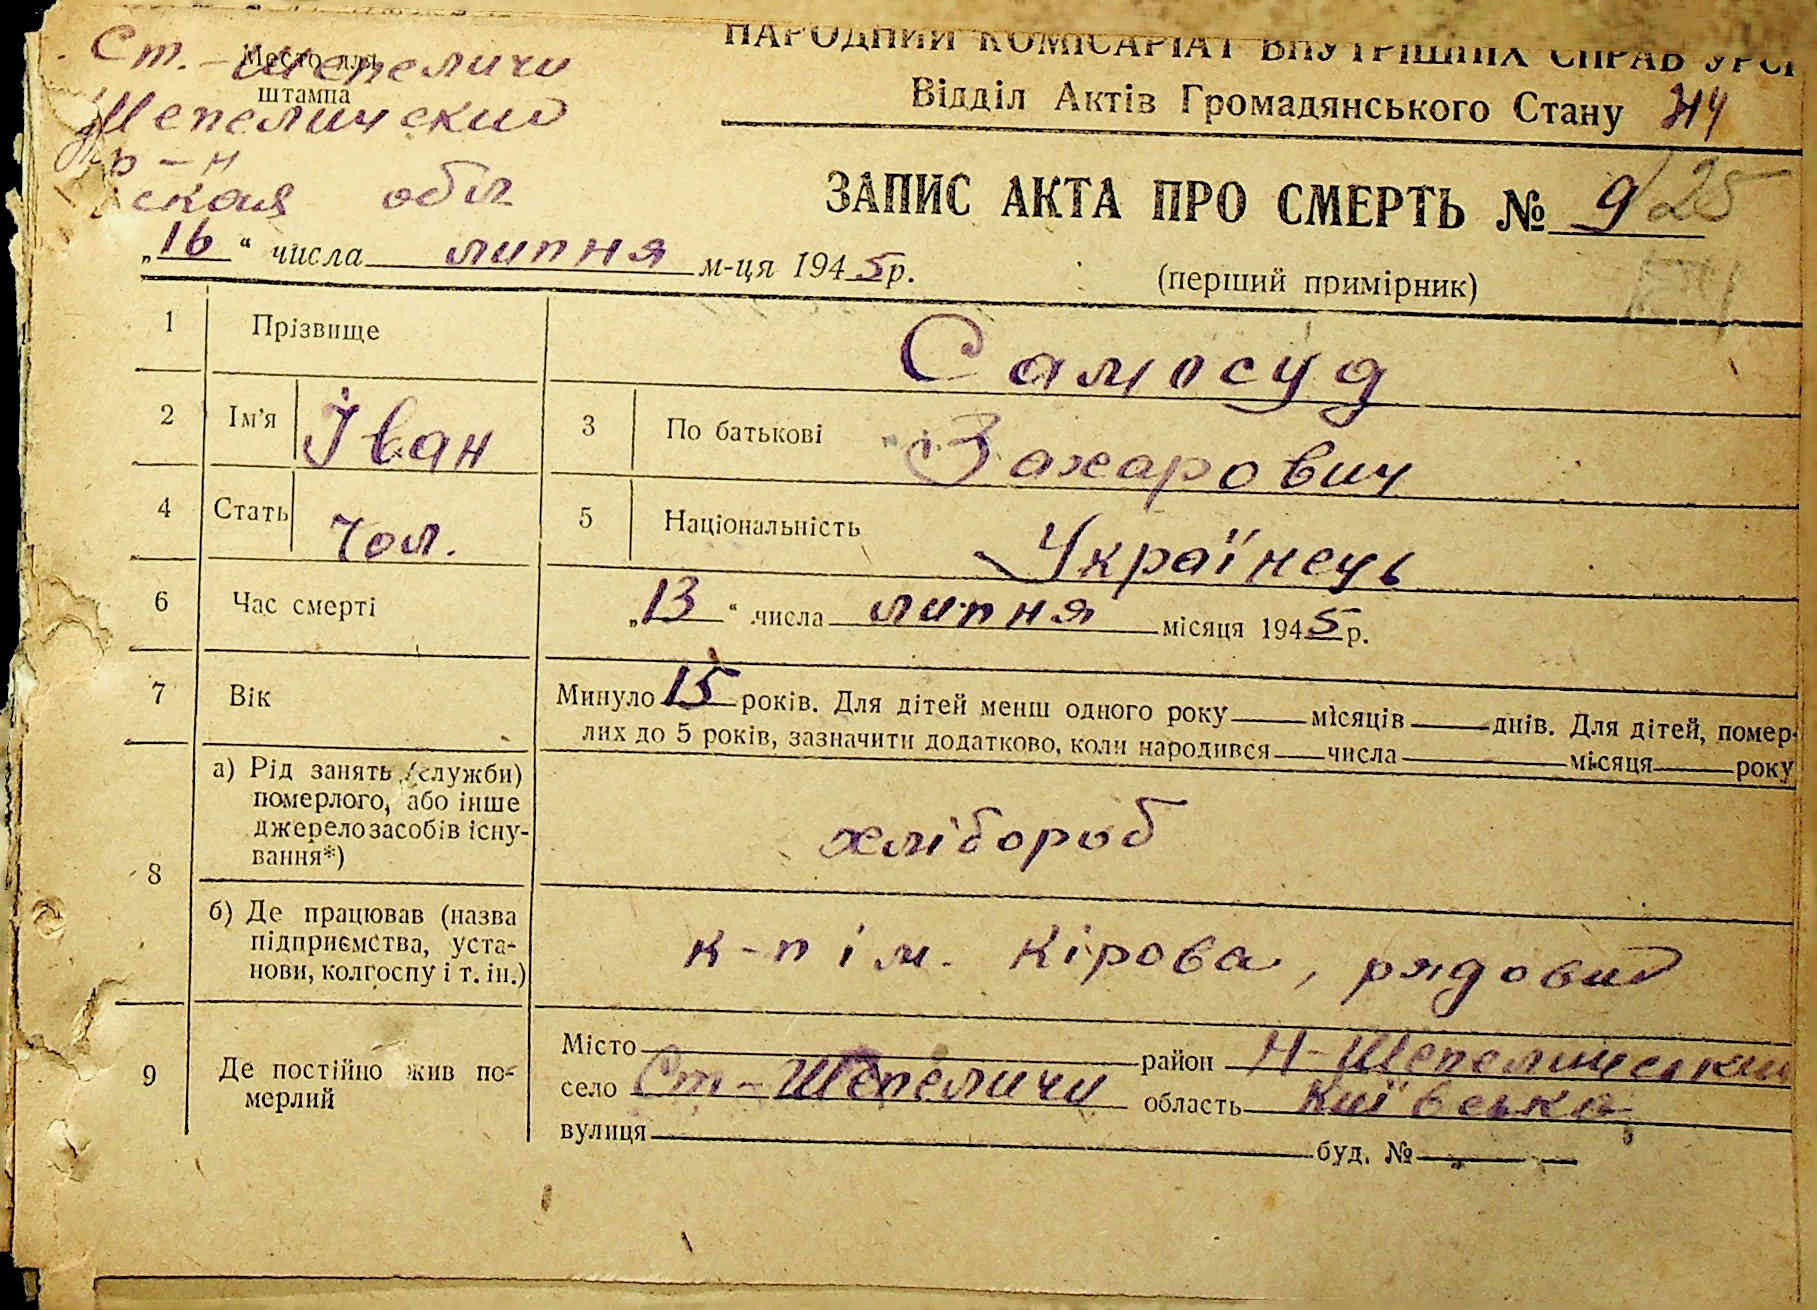 Ст.-Шепеличи
Место для
штампа
Шепеличский
р-н
ская обл
НАРОДНИЙ КОМІСАРІАТ ВНУТРІШНІХ СПРАВ УРСР
Відділ Актів Громадянського Стану
ЗАПИС АКТА ПРО СМЕРТЬ № 9/25
„16“ числа липня м-ця 1945р.
(перший примірник)
1 Прізвище Самосуд
2 Ім'я Іван 3 По батькові Захарович
4 Стать чол. 5 Національність Українець
6 Час смерті „13“ числа липня місяця 1945 р.
7 Вік Минуло 15 років. Для дітей менш одного року — місяців — днів. Для дітей, помер-
лих до 5 років, зазначити додатково, коли народився — числа — місяця — року
8 а) Рід занять (служби)
померлого, або інше
джерело засобів існу-
вання*)
хлібороб
б) Де працював (назва
підприємства, уста-
нови, колгоспу і т. ін.)
к-п ім. Кірова, рядовий
9 Де постійно жив по-
мерлий
Місто — район Н-Шепеличський
село Ст-Шепеличи область Київська
вулиця — буд. № —